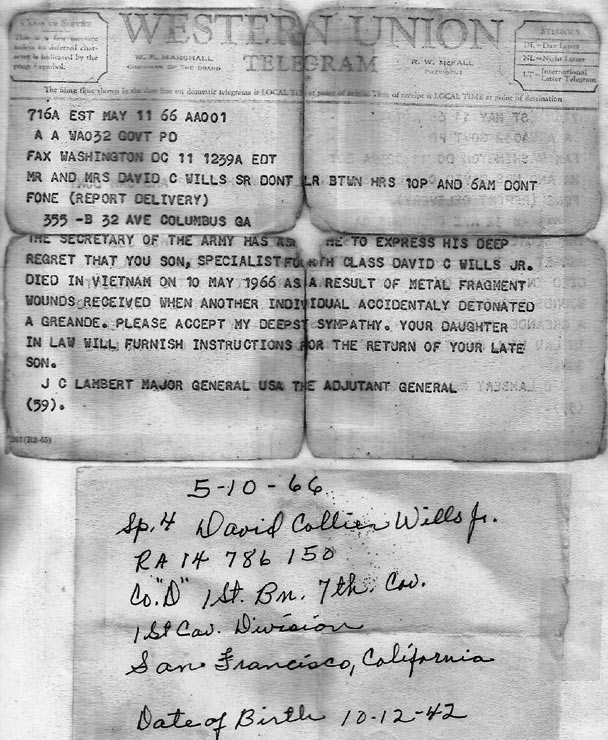 CLASS OF SERVICE
This is a fast message
unless its deferred char-
acter is indicated by the
proper symbol.
WESTERN UNION
TELEGRAM
W. P. MARSHALL
CHAIRMAN OF THE BOARD
R. W. McFALL
PRESIDENT
SYMBOLS
DL=Day Letter
NL=Night Letter
LT=International Letter Telegram
The filing time shown in the date line on domestic telegrams is LOCAL TIME at point of origin. Time of receipt is LOCAL TIME at point of destination
716A EST MAY 11 66 AA001
A A WA032 GOVT PD
FAX WASHINGTON DC 11 1239A EDT
MR AND MRS DAVID C WILLS SR DONT LR BTWN HRS 10P AND 6AM DONT
FONE (REPORT DELIVERY)
355 -B 32 AVE COLUMBUS GA
THE SECRETARY OF THE ARMY HAS AS ME TO EXPRESS HIS DEEP
REGRET THAT YOU SON, SPECIALIST FOURTH CLASS DAVID C WILLS JR.
DIED IN VIETNAM ON 10 MAY 1966 AS A RESULT OF METAL FRAGMENT
WOUNDS RECEIVED WHEN ANOTHER INDIVIDUAL ACCIDENTALY DETONATED
A GREANDE. PLEASE ACCEPT MY DEEPST SYMPATHY. YOUR DAUGHTER
IN LAW WILL FURNISH INSTRUCTIONS FOR THE RETURN OF YOUR LATE
SON.
J C LAMBERT MAJOR GENERAL USA THE ADJUTANT GENERAL
(59).
201(R2-65)
5-10-66
Sp.4 David Collier Wills Jr.
RA 14 786 150
Co. "D" 1st. Bn. 7th. Cav.
1st Cav. Division
San Francisco, California
Date of Birth 10-12-42